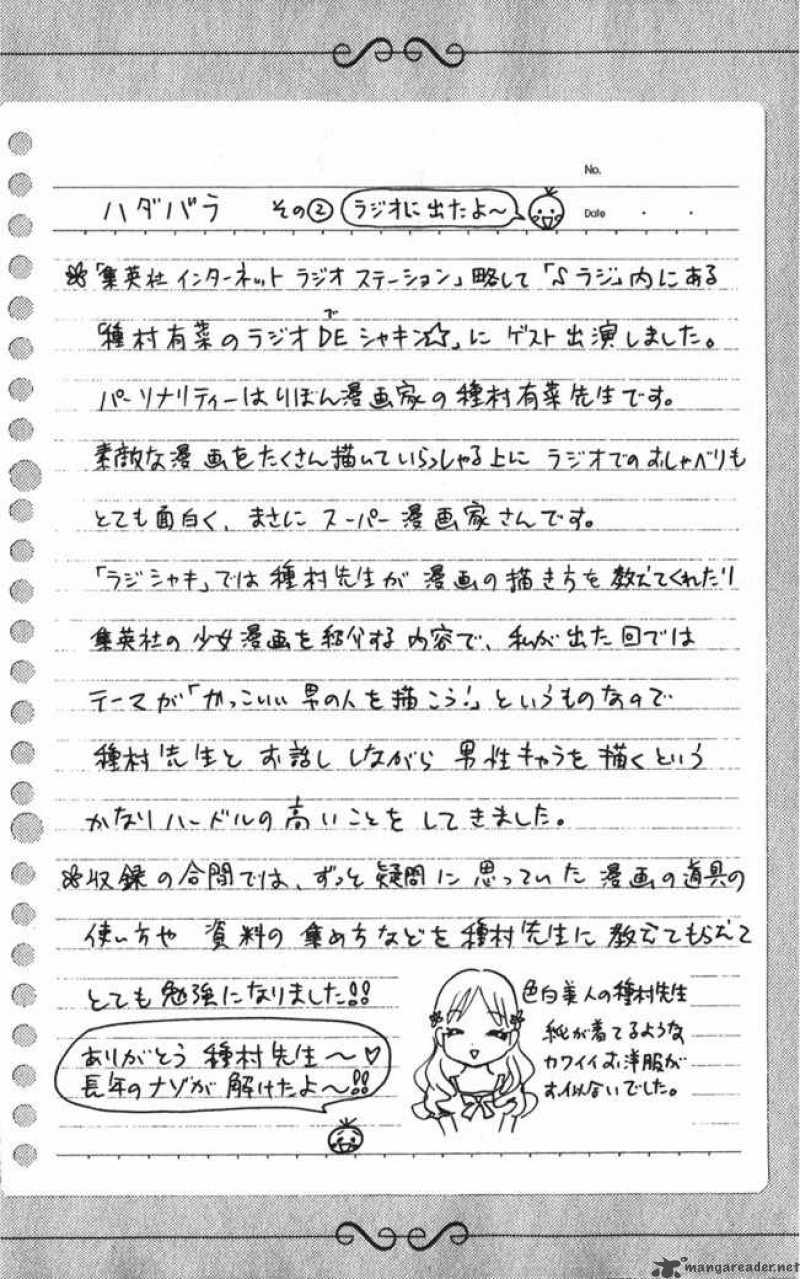 No.
ハダバラ その② ラジオに出たよ〜
Date ・ ・
✽「集英社インターネット ラジオ ステーション」略して「Sラジ」内にある
「種村有菜のラジオDEシャキン☆」に ゲスト出演しました。
で
パーソナリティーはりぼん漫画家の種村有菜先生です。
素敵な漫画をたくさん描いていらっしゃる上に ラジオでのおしゃべりも
とても面白く、まさに スーパー漫画家さんです。
「ラジシャキ」では種村先生が 漫画の描き方を教えてくれたり
集英社の少女漫画を紹介する内容で、私が出た回では
テーマが「かっこいい男の人を描こう!」というものなので
種村先生と お話し しながら 男性キャラを描くという
かなりハードルの高いことを してきました。
✽収録の合間では、ずっと疑問に思っていた漫画の道具の
使い方や 資料の集め方などを種村先生に教えてもらえて
とても勉強になりました!!
ありがとう 種村先生〜♡
長年のナゾが 解けたよ〜!!
色白美人の種村先生
姫が着てるような
カワイイお洋服が
お似合いでした。
mangareader.net